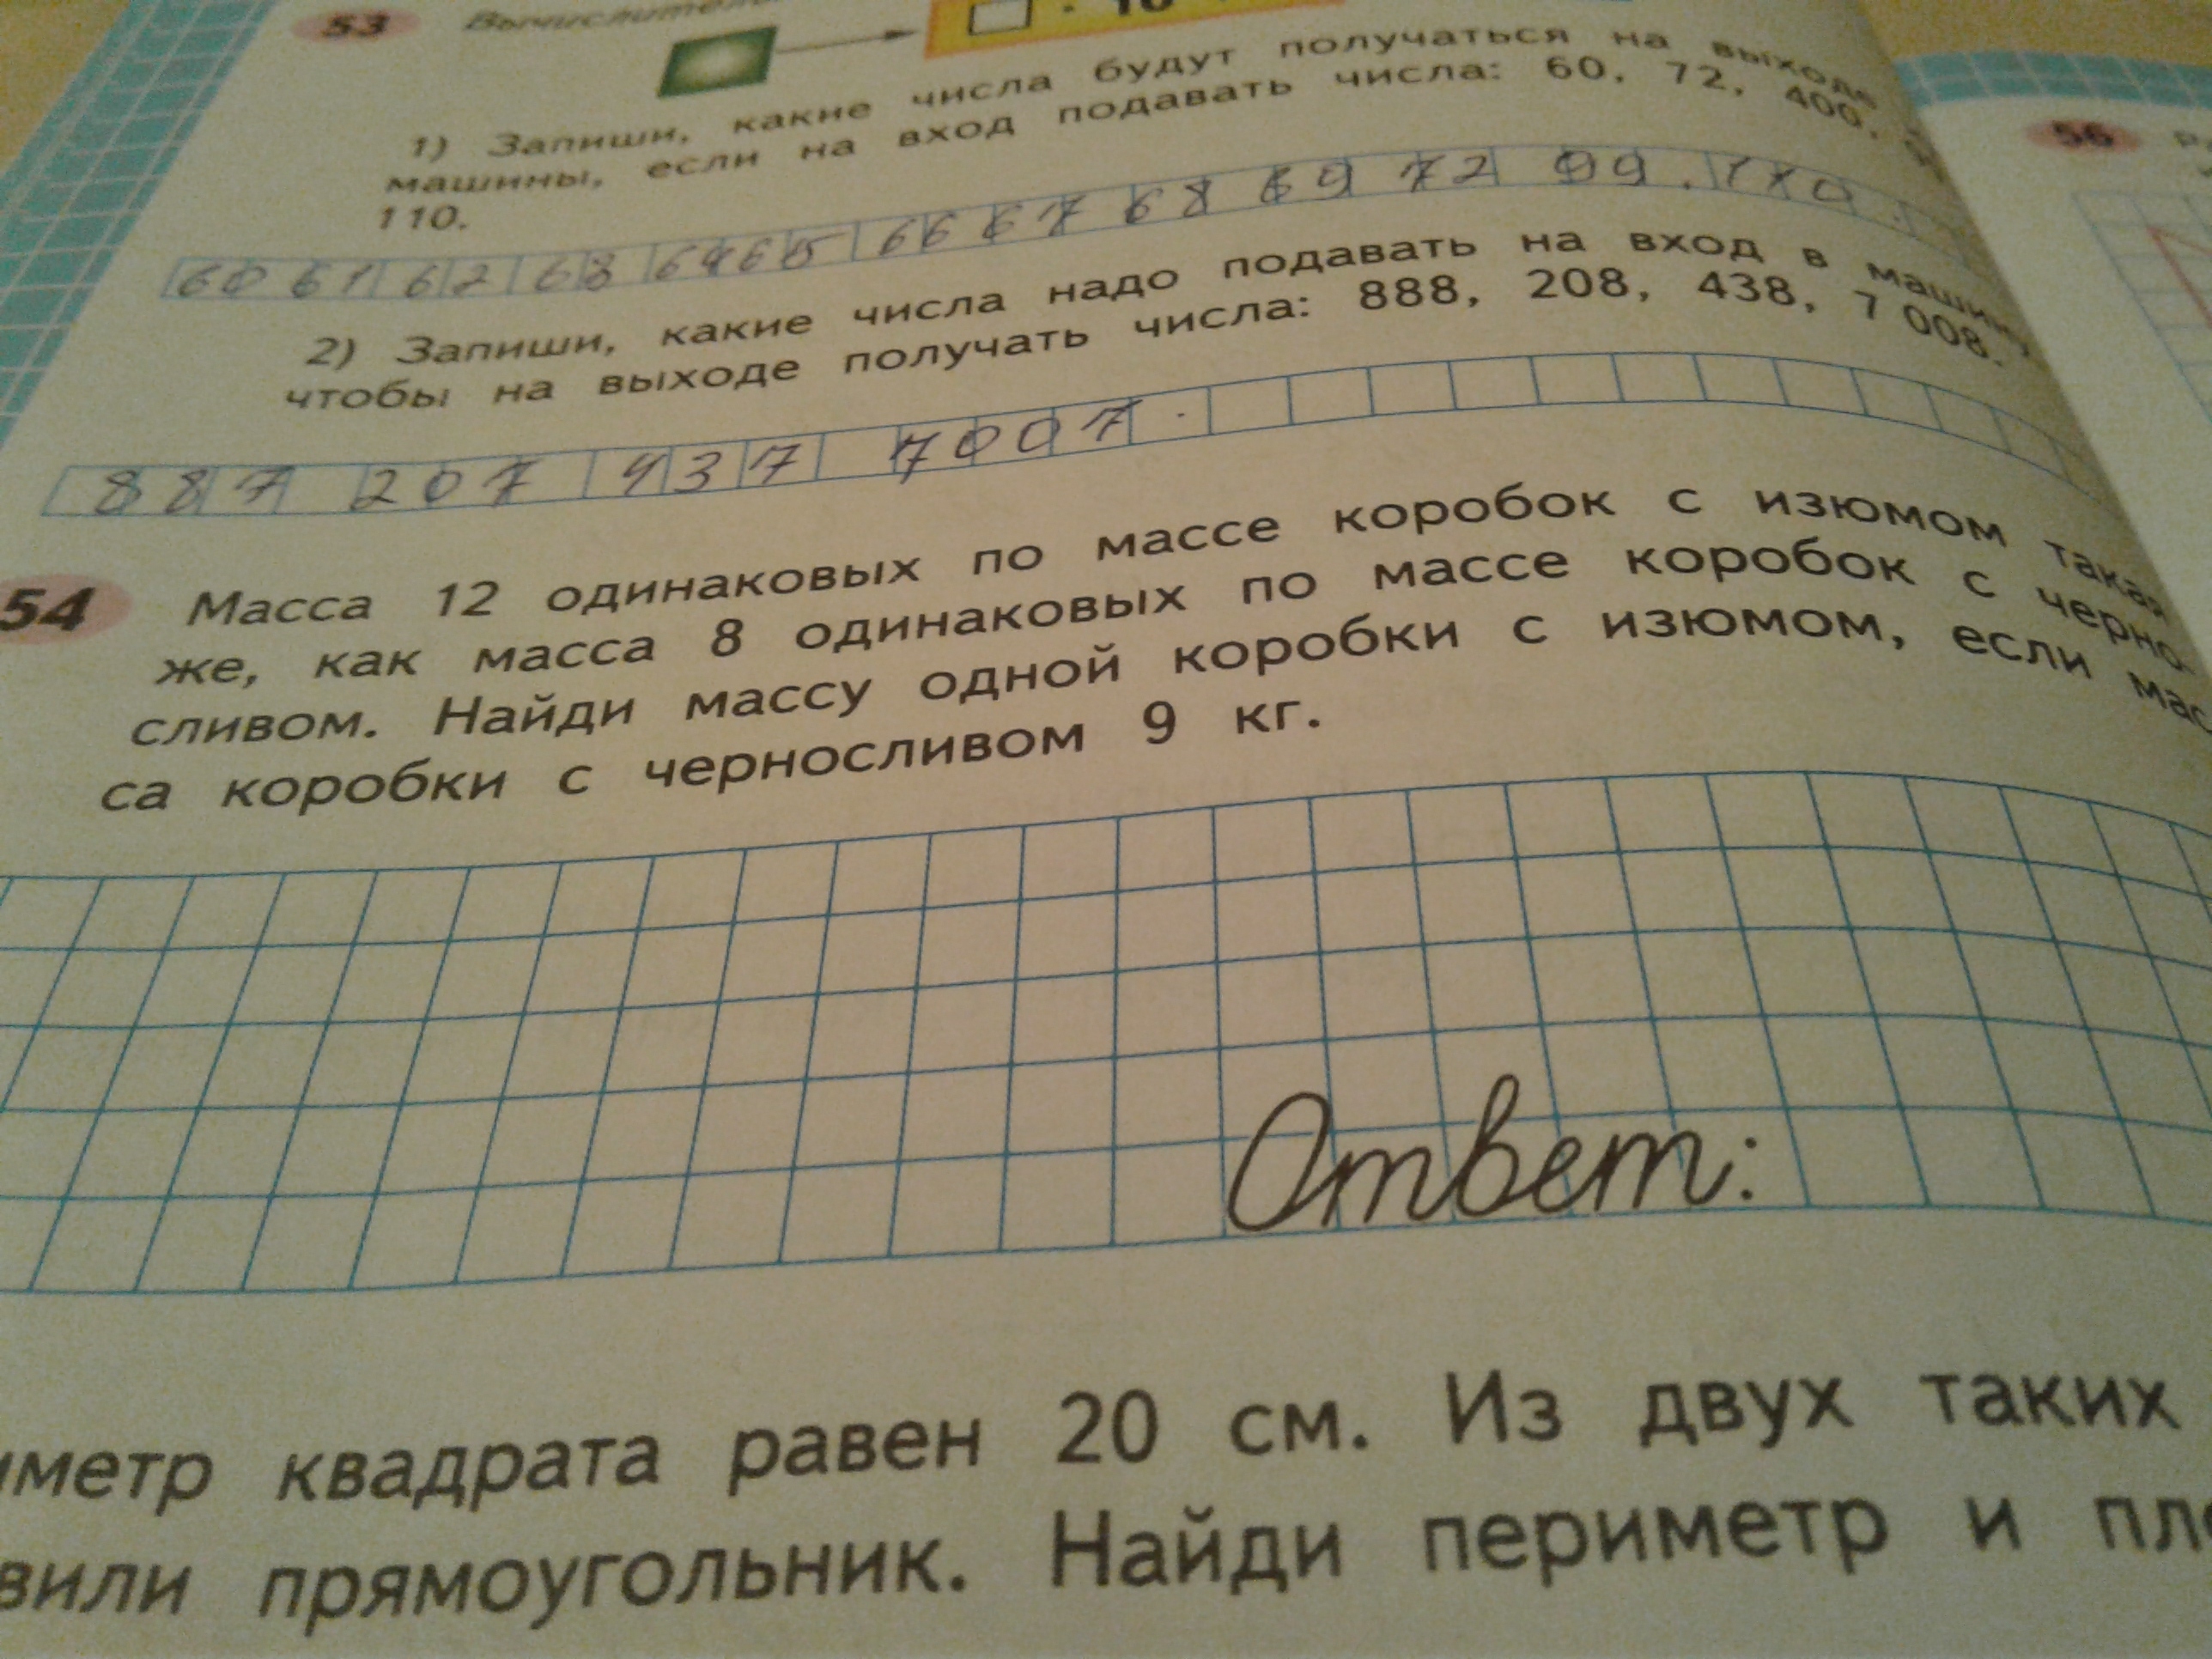 53
□ · 10
1) Запиши, какие числа будут получаться на выходе
машины, если на вход подавать числа: 60, 72, 400,
110.
60 61 62 68 64 65 66 67 68 69 72 99. 110.
2) Запиши, какие числа надо подавать на вход в машину,
чтобы на выходе получать числа: 888, 208, 438, 7 008.
887 207 437 7007.
54 Масса 12 одинаковых по массе коробок с изюмом такая
же, как масса 8 одинаковых по массе коробок с черно-
сливом. Найди массу одной коробки с изюмом, если мас
са коробки с черносливом 9 кг.
Ответ:
метр квадрата равен 20 см. Из двух таких
вили прямоугольник. Найди периметр и
56